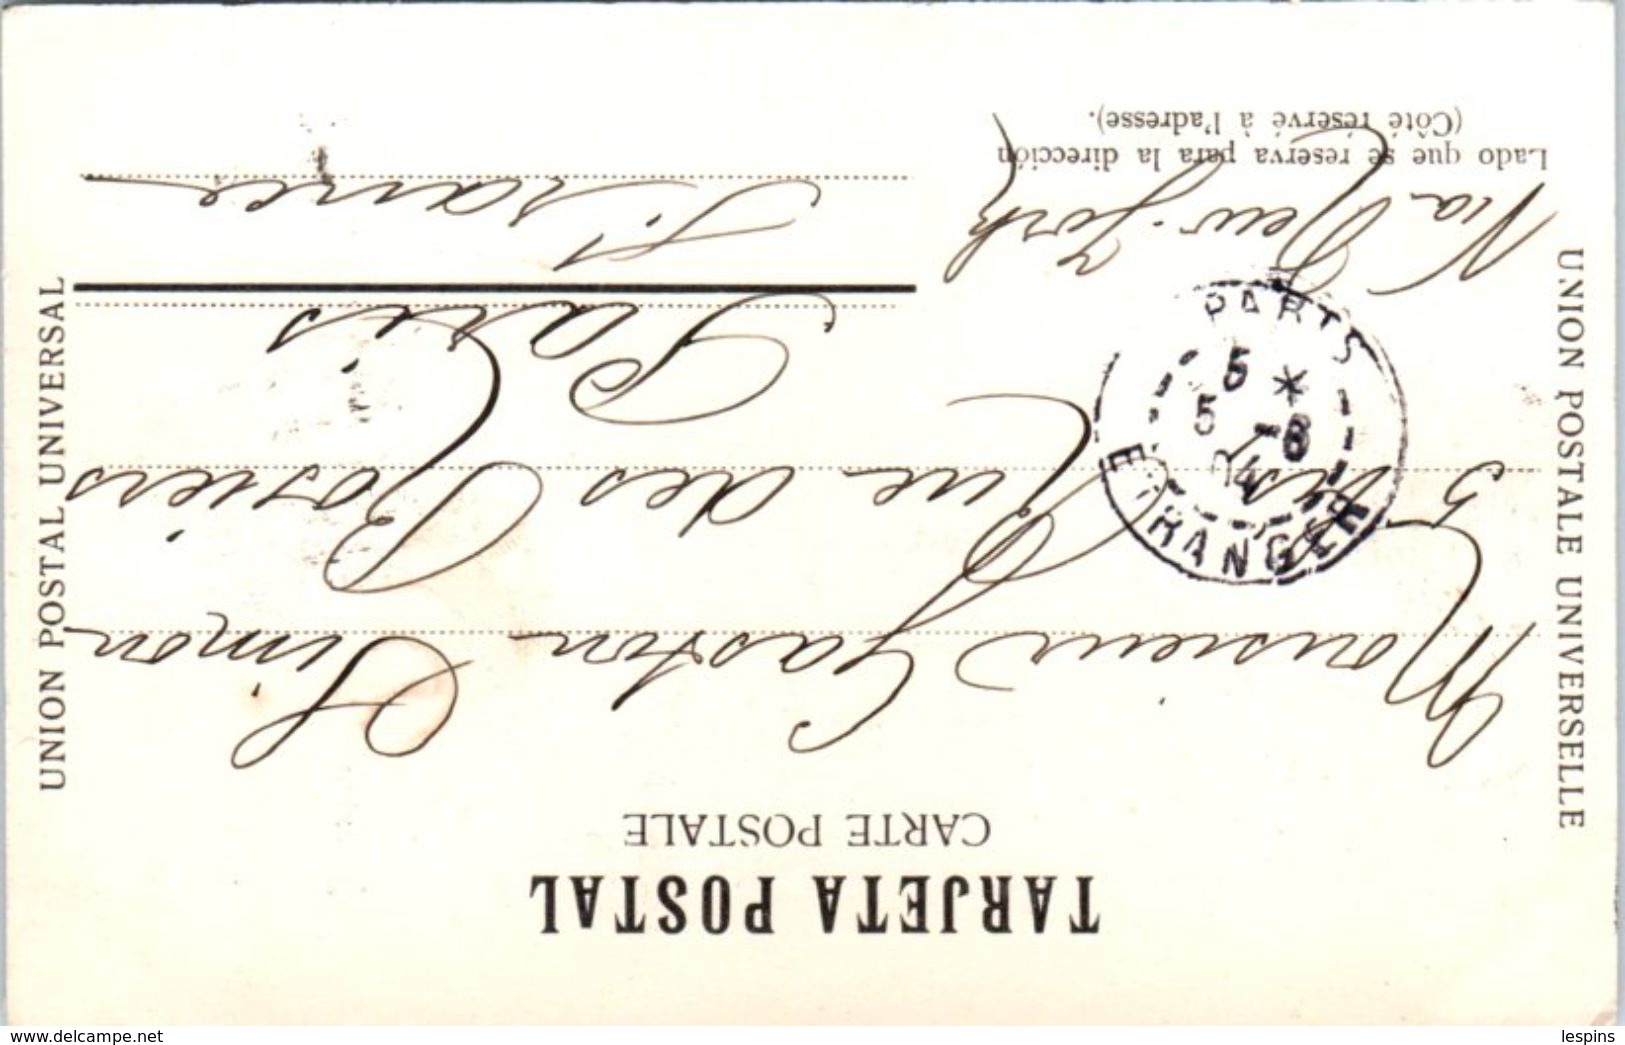 TARJETA POSTAL
CARTE POSTALE
UNION POSTALE UNIVERSELLE
UNION POSTAL UNIVERSAL
Monsieur Gaston Simon
5 Rue des Rosiers
Paris
France
Via New-York
Lado que se reserva para la dirección
(Côté réservé à l'adresse).
PARIS
5 *
5 -6
04
ETRANGER
delcampe.net
lespins